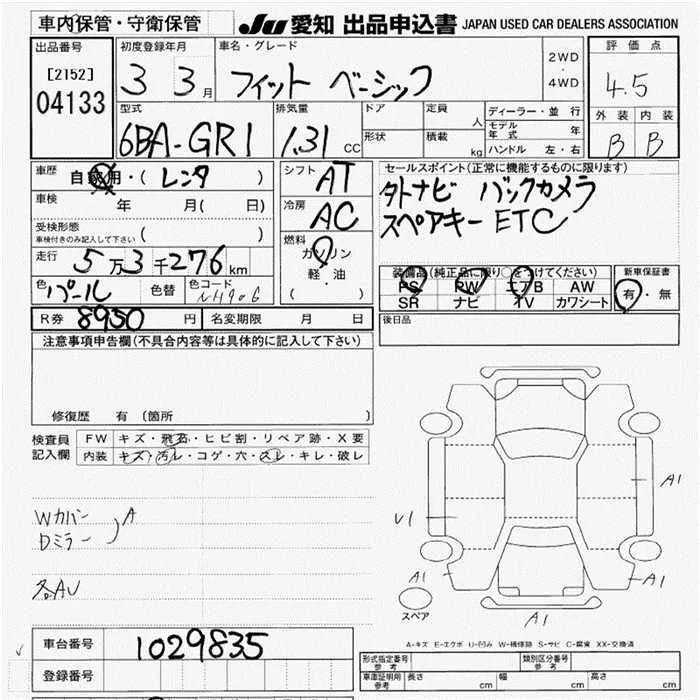 車内保管・守衛保管
JU 愛知 出品申込書 JAPAN USED CAR DEALERS ASSOCIATION
出品番号
[2152]
04133
初度登録年月
3 3月
車名・グレード
フィット ベーシック
2WD
・
4WD
評価点
4.5
外装 内装
B B
型式
6BA-GR1
排気量
1.31 CC
ドア
定員
人
形状
積載
kg
ディーラー・並行
モデル年式 年
ハンドル 左・右
車歴
自家用・( レンタ )
車検
年 月( 日)
受検形態
車検付きのみ記入して下さい ( )
走行
5万3千276km
色
パール
色替
色コード
NH906
シフト
AT
冷房
AC
燃料
ガソリン
軽・油
( )
セールスポイント(正常に機能するものに限ります)
タトナビ バックカメラ
スペアキー ETC
装備品(純正品に限り○をつけてください)
PS PW エアB AW
SR ナビ TV カワシート
新車保証書
有・無
R券
8950 円
名変期限 月 日
後日品
注意事項申告欄(不具合内容等は具体的に記入して下さい)
修復歴 有 〔箇所 〕
検査員
記入欄
FW キズ・飛石・ヒビ割・リペア跡・X要
内装 キズ・汚レ・コゲ・穴・スレ・キレ・破レ
Wカバー
Dミラー
A
各AU
A1
U1
A1
A1
A1
スペア
A-キズ E-エクボ U-凹み W-補修跡 S-サビ C-腐食 XX-交換済
車台番号
1029835
登録番号
形式指定番号
参考
類別区分番号
参考
車庫証明用
参考
長さ cm
幅 cm
高さ cm